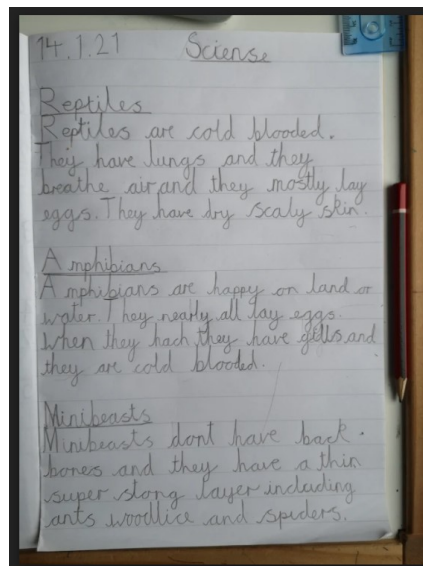 14.1.21 Sciense
Reptiles
Reptiles are cold blooded.
They have lungs and they
breathe air and they mostly lay
eggs. They have dry scaly skin.
Amphibians
Amphibians are happy on land or
water. They nearly all lay eggs.
when they hach they have gills and
they are cold blooded.
Minibeasts
Minibeasts dont have back
bones and they have a thin
super stong layer including
ants woodlice and spiders.